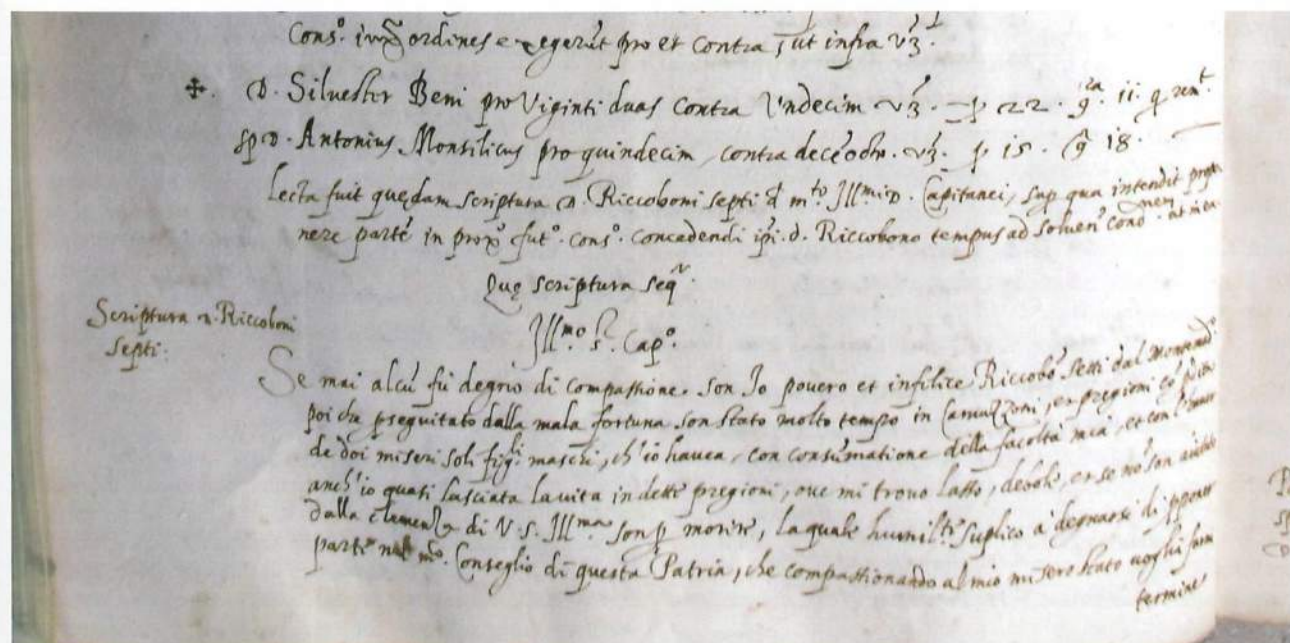 Cons.º ordines e pro et Contra, ut infra vz.
✠. D. Silvester Beni pro Viginti duas Contra Undecim vz. p 22. 9.ra ii. q ren.t
sp D. Antonius Monsilicus pro quindecim, contra decéodto. vz. p 15. 9 18.
Lecta fuit quędam scriptura D. Riccoboni septi d m.to Jll.mi D. Capitanei, sup qua intendit
nere parté in prox.º fut.º cons.º concedendi ipi. d. Riccobono tempus ad solven
Quę scriptura seq.r
Scriptura D. Riccoboni
Septi:
Jll.mo s.r Cap.º
Se mai alcu fù degno di Compassione, son Jo povero et infilice Riccobo Setti dal
Poi che pseguitato dalla mala fortuna son stato molto tempo in Camuzzoni, et pregioni
de doi miseri soli figli maschi, ch'io havea, con consumatione della facoltà mia, et con
anch'io quasi lasciata la vita in dette pregioni, ove mi trovo lasso, debole, et se nó son aiutato
dalla clemenza di V. S. Jll.ma son p morire, la quale humil.te suplico à degnarsi di pponer
parte nel m.co Conseglio di questa Patria, che compassionando al mio misero stato voglii farmi
termine